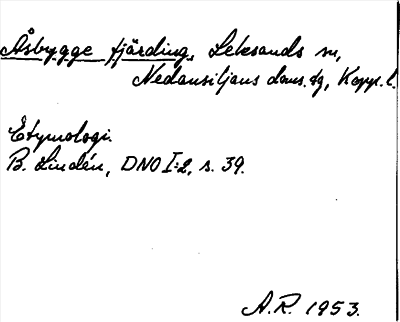 Åsbygge fjärding, Leksands sn,
Nedansiljans doms.tg, Kopp. l.
Etymologi.
B. Lindén, DNO I:2, s. 39.
A.R. 1953.